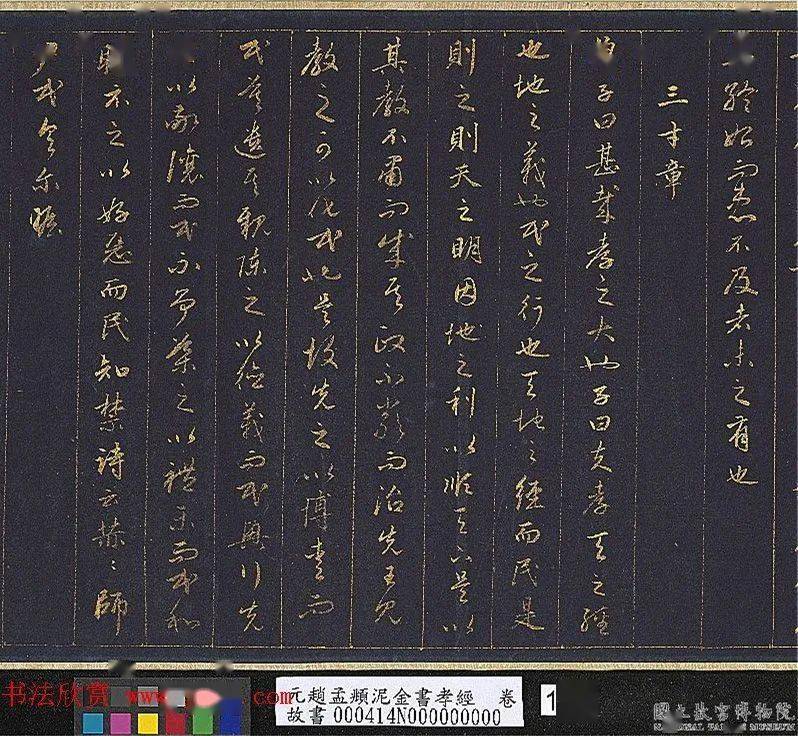 終始而患不及者未之有也
三才章
曾子曰甚哉孝之大也子曰夫孝天之經
也地之義也民之行也天地之經而民是
則之則天之明因地之利以順天下是以
其教不肅而成其政不嚴而治先王見
教之可以化民也是故先之以博愛而
民莫遺其親陳之以德義而民興行先
以敬讓而民不爭導之以禮樂而民和
睦示之以好惡而民知禁詩云赫〻師
尹民具爾瞻
书法欣赏 www. .com
元趙孟頫泥金書孝經 卷 1
故書000414N000000000
國立故宮博物院
NATIONAL PALACE MUSEUM